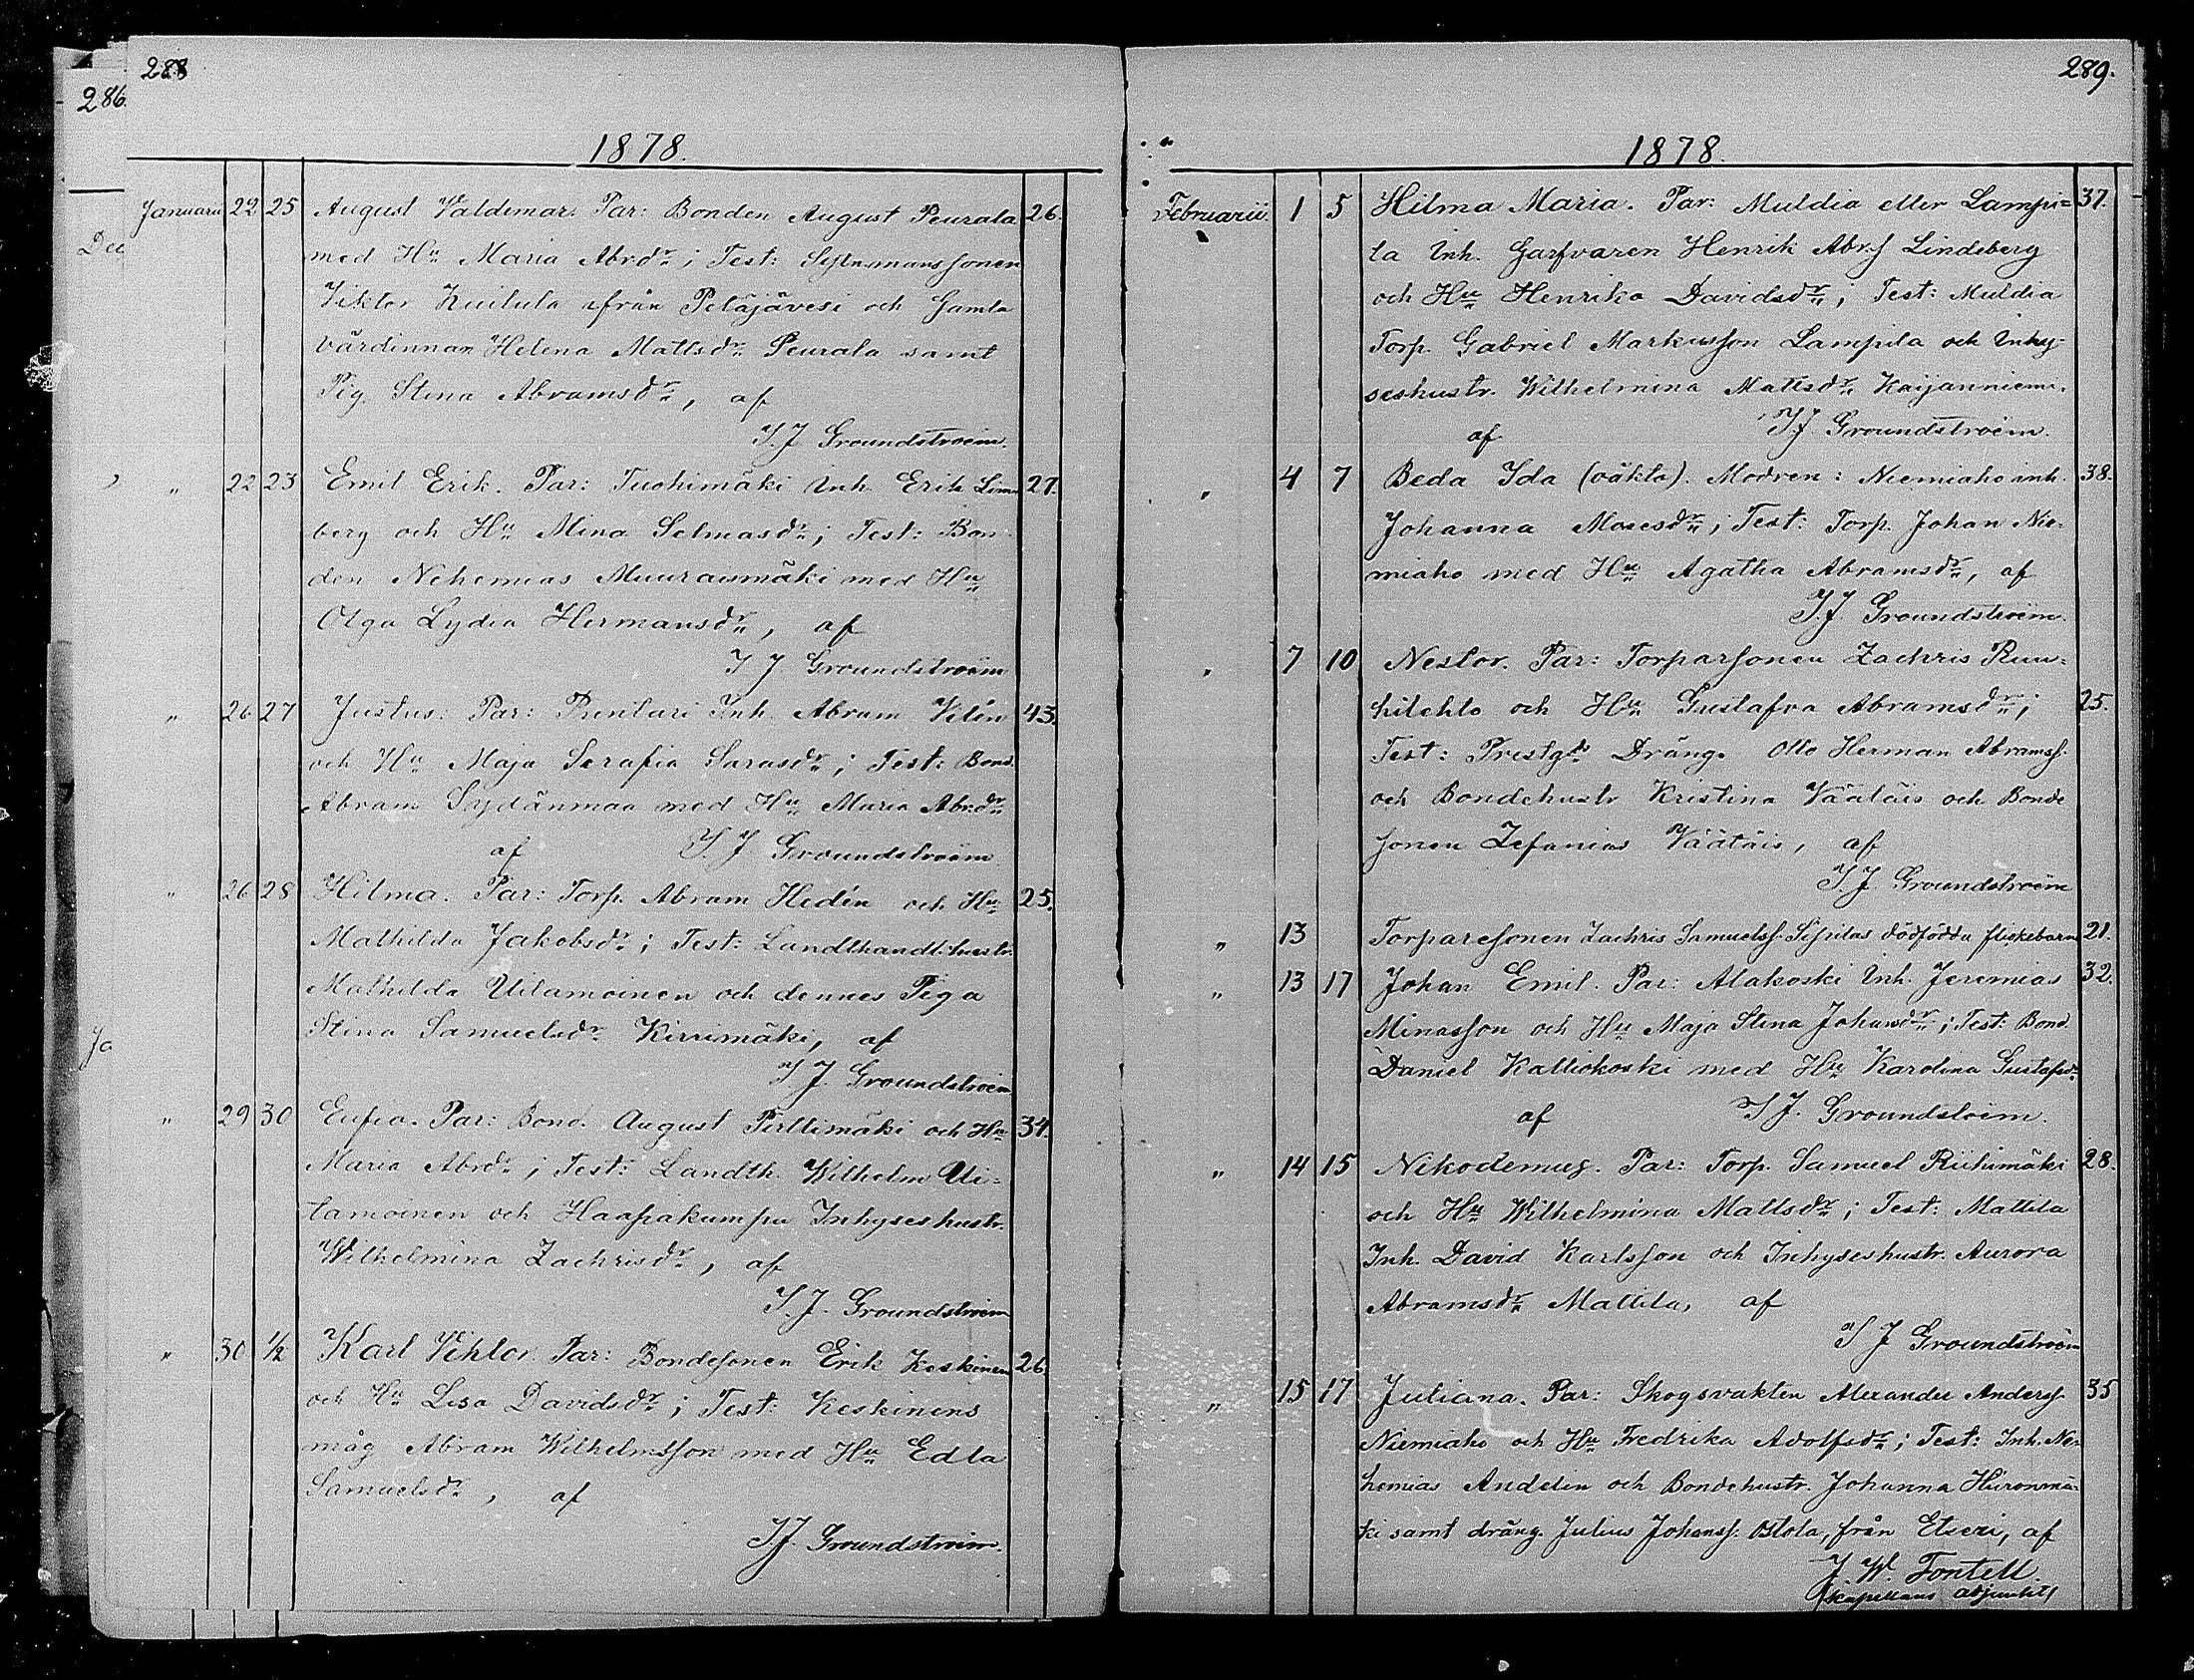 288
286.
1878.
Januarii 22 25 August Valdemar. Par: Bonden August Peurala 26.
Dec
med Hu Maria Abrdr; Test:
Viktor Kuitula från Petäjävesi och Gamla
värdinnan Helena Mattsdr Peurala samt
Pig. Stina Abramsdr, af
I. J Groundstroëm.
" 22 23 Emil Erik. Par: Tuohimäki Inh. Erik Lim 27.
berg och Hu Mina Selmasdr; Test: Bon
den Nehemias Muuraismäki med Hu
Olga Lydia Hermansdr, af
I J Groundstroëm
" 26 27 Justus. Par: Inh. Abram Vilén 43.
och Hu Maja Serafia Sarasdr; Test: Bond.
Abram Sydänmaa med Hu Maria Abrdr
af I. J Groundstroëm
" 26 28 Hilma. Par: Torp. Abram Hedén och Hu 25.
Mathilda Jakobsdr; Test: Landthandl. hustr.
Mathilda Uitamoinen och dennes Piga
Stina Samuelsdr Kirrimäki, af
I J. Groundstroëm
Ja
" 29 30 Eufia. Par: Bond. August Perttimäki och Hu 34.
Maria Abrdr; Test: Landth. Wilhelm Ui=
tamoinen och Haapakumpu Inhyseshustr.
Wilhelmina Zachrisdr, af
I. J. Groundstroëm
" 30 1/2 Karl Vihtor. Par: Bondesonen Erik Keskinen 26
och Hu Lisa Davidsdr; Test: Keskinens
måg Abram Wilhelmsson med Hu Edla
Samuelsdr, af
I. J. Groundstroëm.
289.
1878.
Februarii. 1 5 Hilma Maria. Par: Muldia eller Lampi= 37.
la Inh. Garfvaren Henrik Abr.s Lindeberg
och Hu Henrika Davidsdr; Test: Muldia
Torp. Gabriel Markusson Lampila och Inhy-
seshustr. Wilhelmina Mattsdr Kaijanniemi.
af I. J. Groundstroëm.
" 4 7 Beda Ida (oäkta). Modren: Niemiaho inh. 38.
Johanna Mosesdr; Test: Torp. Johan Nie-
miaho med Hu Agatha Abramsdr, af
I. J. Groundstroëm.
" 7 10 Nestor. Par: Torparsonen Zachris Ruu=
hilehto och Hu Gustafva Abramsdr; 25.
Test: Prestgds Dräng. Otto Herman Abramss.
och Bondehustr Kristina Väätäis och Bonde
sonen Zefanias Väätäis, af
I. J. Groundstroëm
" 13 Torparesonen Zachris Samuelss. Sipilas dödfödda flickebarn 21.
" 13 17 Johan Emil. Par: Alakoski Inh. Jeremias 32.
Minasson och Hu Maja Stina Johansdr; Test: Bond.
Daniel Kalliokoski med Hu Karolina Gustafsdr
af I J. Groundstoëm.
" 14 15 Nikodemus. Par: Torp. Samuel Riihimäki 28.
och Hu Wilhelmina Mattsdr; Test: Mattila
Inh. David Karlsson och Inhyseshustr. Aurora
Abramsdr Mattila, af
I J Groundstroëm
" 15 17 Juliana. Par: Skogsvakten Alexander Anderss. 35
Niemiaho och Hu Fredrika Adolfsdr; Test: Inh. Ne-
hemias Andelin och Bondehustr. Johanna Hiironmä-
ki samt dräng. Julius Johanss. Ostola, från Etseri, af
J. W. Fontell
(kapellans adjunkt)